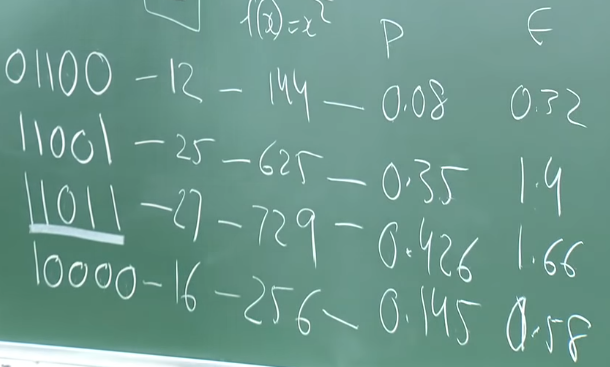 f(x)=x² P E
01100 – 12 – 144 – 0.08 0.32
11001 – 25 – 625 – 0.35 1.4
11011 – 27 – 729 – 0.426 1.66
10000 – 16 – 256 – 0.145 0.58